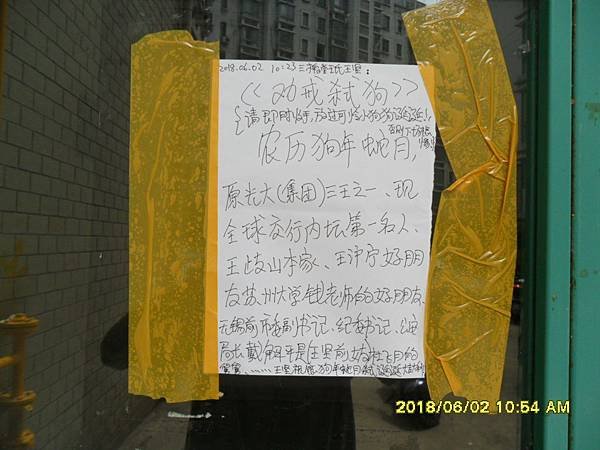 2018.06.02 10:23三 王坚:
《劝戒弑狗》
{请即时 手,放过可怜小狗狗
农历狗年蛇月,
原光大(集团)三王之一、现
全球交行内坛第一名人、
王歧山本家、王沪宁好朋
友苏州大学钱老师的好朋友、
无锡前市委副书记、纪委书记、公安
局长戴解平是王坚前女 杜飞月的
舅舅、……王坚 狗年蛇月
2018/06/02 10:54 AM